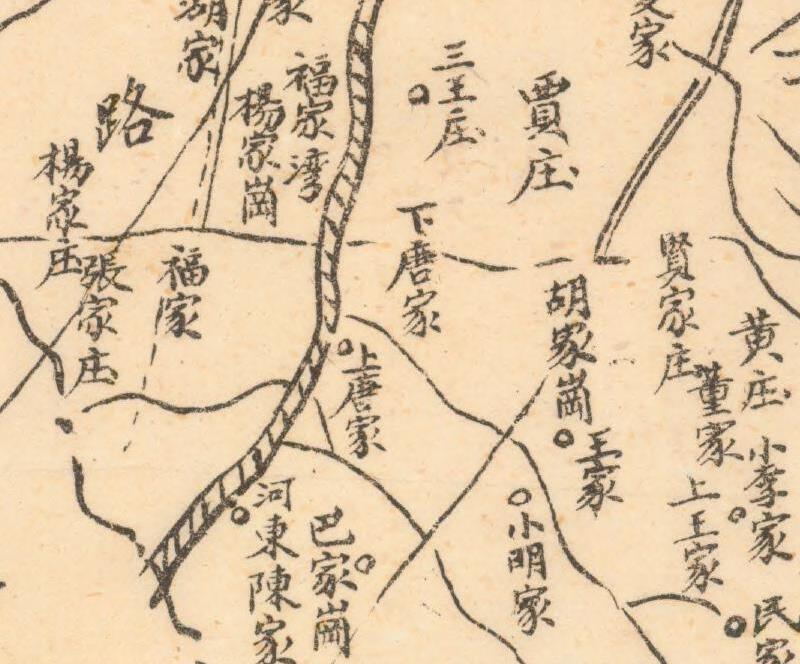 湖家
家
福家湾
楊家崗
路
楊家庄
張家庄
福家
三王庄
賈庄
家
下唐家
上唐家
一胡家崗
王家
賢家庄
黄庄
董家
小李家
上王家
民家
小明家
巴家崗
河東陳家